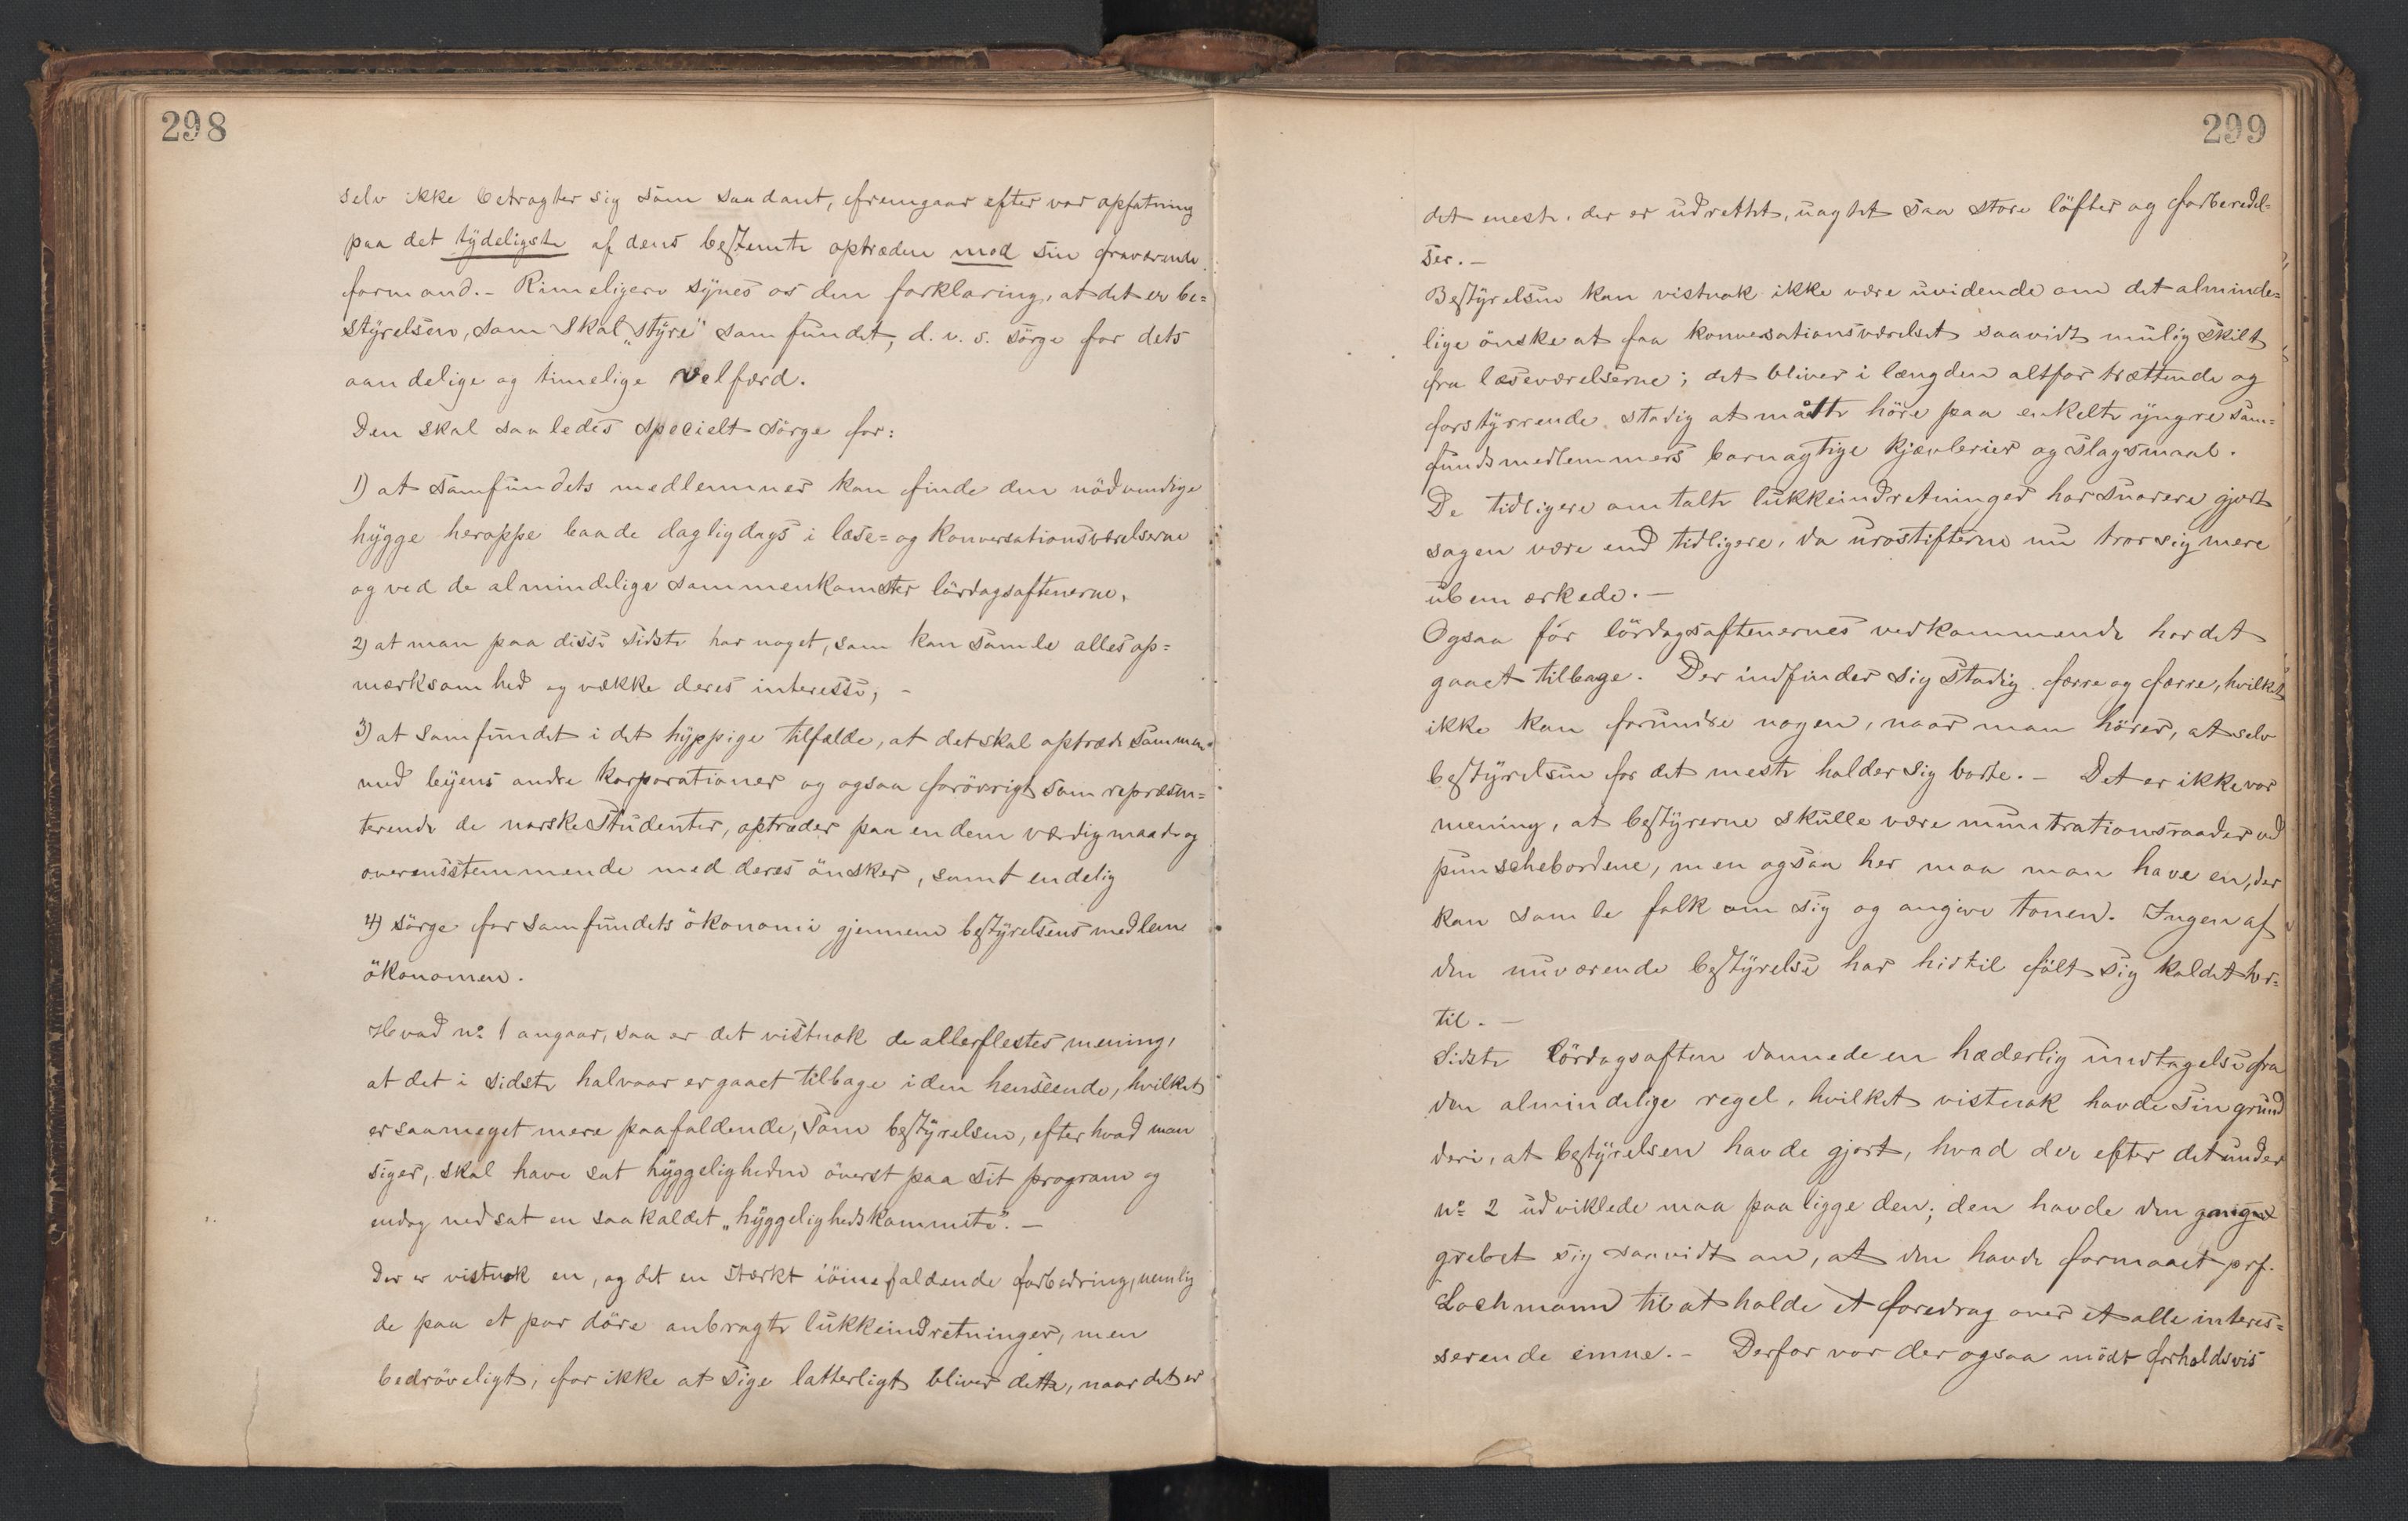 298
selv ikke betragter sig som saadant, fremgaar efter vor opfatning
paa det tydeligste af dens bestemte optræden mod sin fraværende
formand. - Rimeligere synes os den forklaring, at det er be=
styrelsen, som skal "styre" samfundet, d. v. s. sörge for dets
aandelige og timelige velfærd.
Den skal saaledes specielt sörge for:
1) at samfundets medlemmer kan finde den nödvendige
hygge heroppe baade dagligdags i læse= og konversationsværelserne
og ved de almindelige sammenkomster lördagsaftenerne,
2) at man paa disse sidste har noget, som kan samle alles op=
mærksomhed og vække deres interesse, -
3) at samfundet i det hyppige tilfælde, at det skal optræde sammen
med byens andre korporationer og ogsaa forövrigt som repræsen=
terende de norske studenter, optræder paa en dem værdig maade og
overensstemmende med deres önsker, samt endelig
4) sörge for samfundets ökonomi gjennem bestyrelsens medlem
ökonomen.
Hvad no 1 angaar, saa er det vistnok de allerflestes mening,
at det i sidste halvaar er gaaet tilbage i den henseende, hvilket
er saameget mere paafaldende, som bestyrelsen, efter hvad man
siger, skal have sat hyggeligheden överst paa sit program og
endog nedsat en saakaldet "hyggelighedskommite". -
Der er vistnok en, og det en stærkt iöinefaldende forbedring, nemlig
de paa et par döre anbragte lukkeindretninger, men
bedröveligt, for ikke at sige latterligt bliver dette, naar det er
299
det meste, der er udrettet, uagtet saa store löfter og forberedel=
ser. -
Bestyrelsen kan vistnok ikke være uvidende om det alminde=
lige önske at faa konversationsværelset saavidt mulig skilt
fra læseværelserne; det bliver i længden altfor trættende og
forstyrrende stadig at måtte höre paa enkelte yngre sam=
fundsmedlemmers barnagtige kjævlerier og slagsmaal.
De tidligere omtalte lukkeindretninger har snarere gjort
sagen være end tidligere, da urostifterne nu tror sig mere
ubemærkede. -
Ogsaa for lördagsaftenernes vedkommende har det
gaaet tilbage. Der indfinder sig stadig færre og færre, hvilket
ikke kan forundre nogen, naar man hörer, at selv
bestyrelsen for det meste holder sig borte. - Det er ikke vor
mening, at bestyrerne skulle være muntrationsraader ved
punschebordene, men ogsaa her maa man have en, der
kan samle folk om sig og angive tonen. Ingen af
den nuværende bestyrelse har hidtil fölt sig kaldet her=
til. -
Sidste lördagsaften dannede en hæderlig undtagelse fra
den almindelige regel, hvilket vistnok havde sin grund
deri, at bestyrelsen havde gjort, hvad der efter det under
no 2 udviklede maa paaligge den; den havde den gang
grebet sig saavidt an, at den havde formaaet prf.
Lochmann til at holde et foredrag over et alle interes=
serende emne. - Derfor var der ogsaa mödt forholdsvis